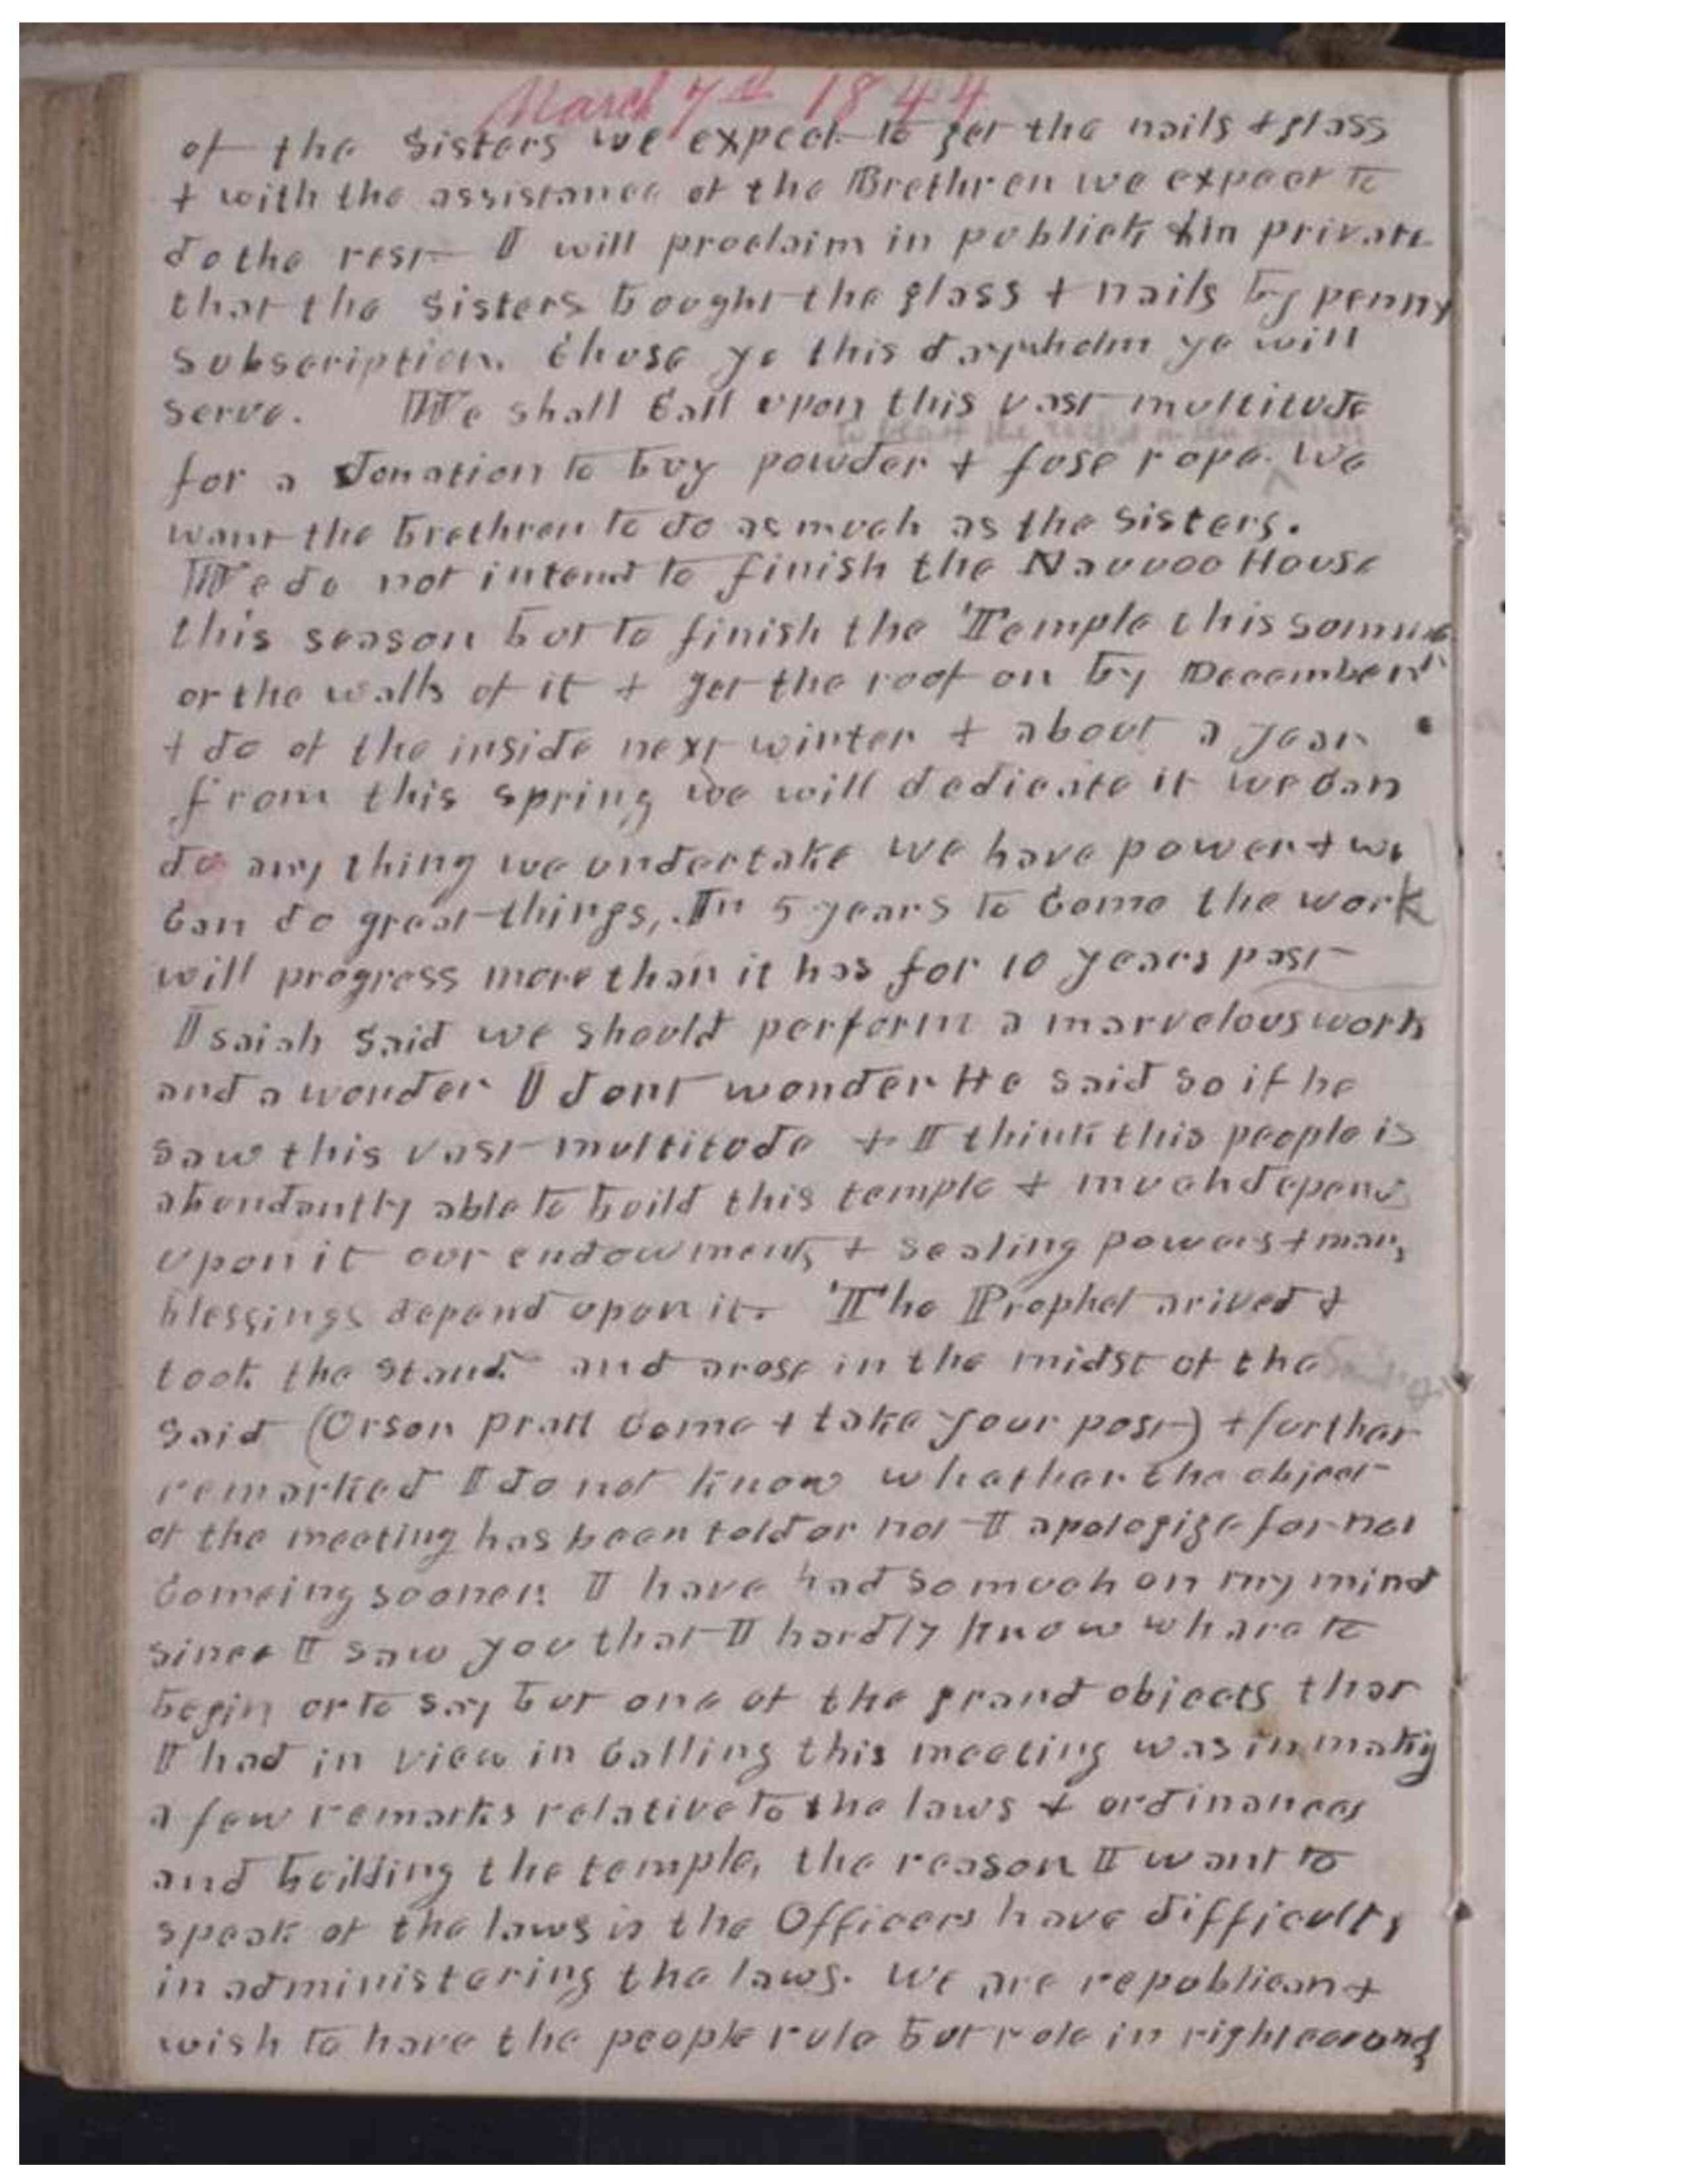 March 7th 1844
of the Sisters we expect to get the nails & glass
& with the assistance of the Brethren we expect to
do the rest I will proclaim in publick & in private
that the Sisters bought the glass & nails by penny
Subscription. Chose ye this day whom ye will
serve. We shall Call upon this vast multitude
to blast the rocks in the
for a donation to buy powder & fuse rope. ^ We
want the brethren to do as much as the Sisters.
We do not intend to finish the Nauvoo House
this season but to finish the Temple this summer
or the walls of it & get the roof on by December
& do of the inside next winter & about a year
from this spring we will dedicate it we Can
do any thing we undertake we have power & we
Can do great things, In 5 years to Come the work
will progress more than it has for 10 years past
Isaiah Said we should perform a marvelous work
and a wonder I dont wonder He said so if he
saw this vast multitude & I think this people is
abundantly able to build this temple & much depends
upon it our endowments & sealing powers & many
blessings depend upon it. The Prophet arived &
took the stand and arose in the midst of the
Said (Orson Pratt Come & take your post) & further
remarked I do not know whather the object
of the meeting has been told or not I apologize for not
Comeing sooner. I have had so much on my mind
since I saw you that I hardly know whare to
begin or to say but one of the grand objects that
I had in view in Calling this meeting was in makig
a few remarks relative to the laws & ordinances
and building the temple, the reason I want to
speak of the laws is the Officers have difficulty
in administering the laws. We are republican &
wish to have the people rule but rule in righteousness